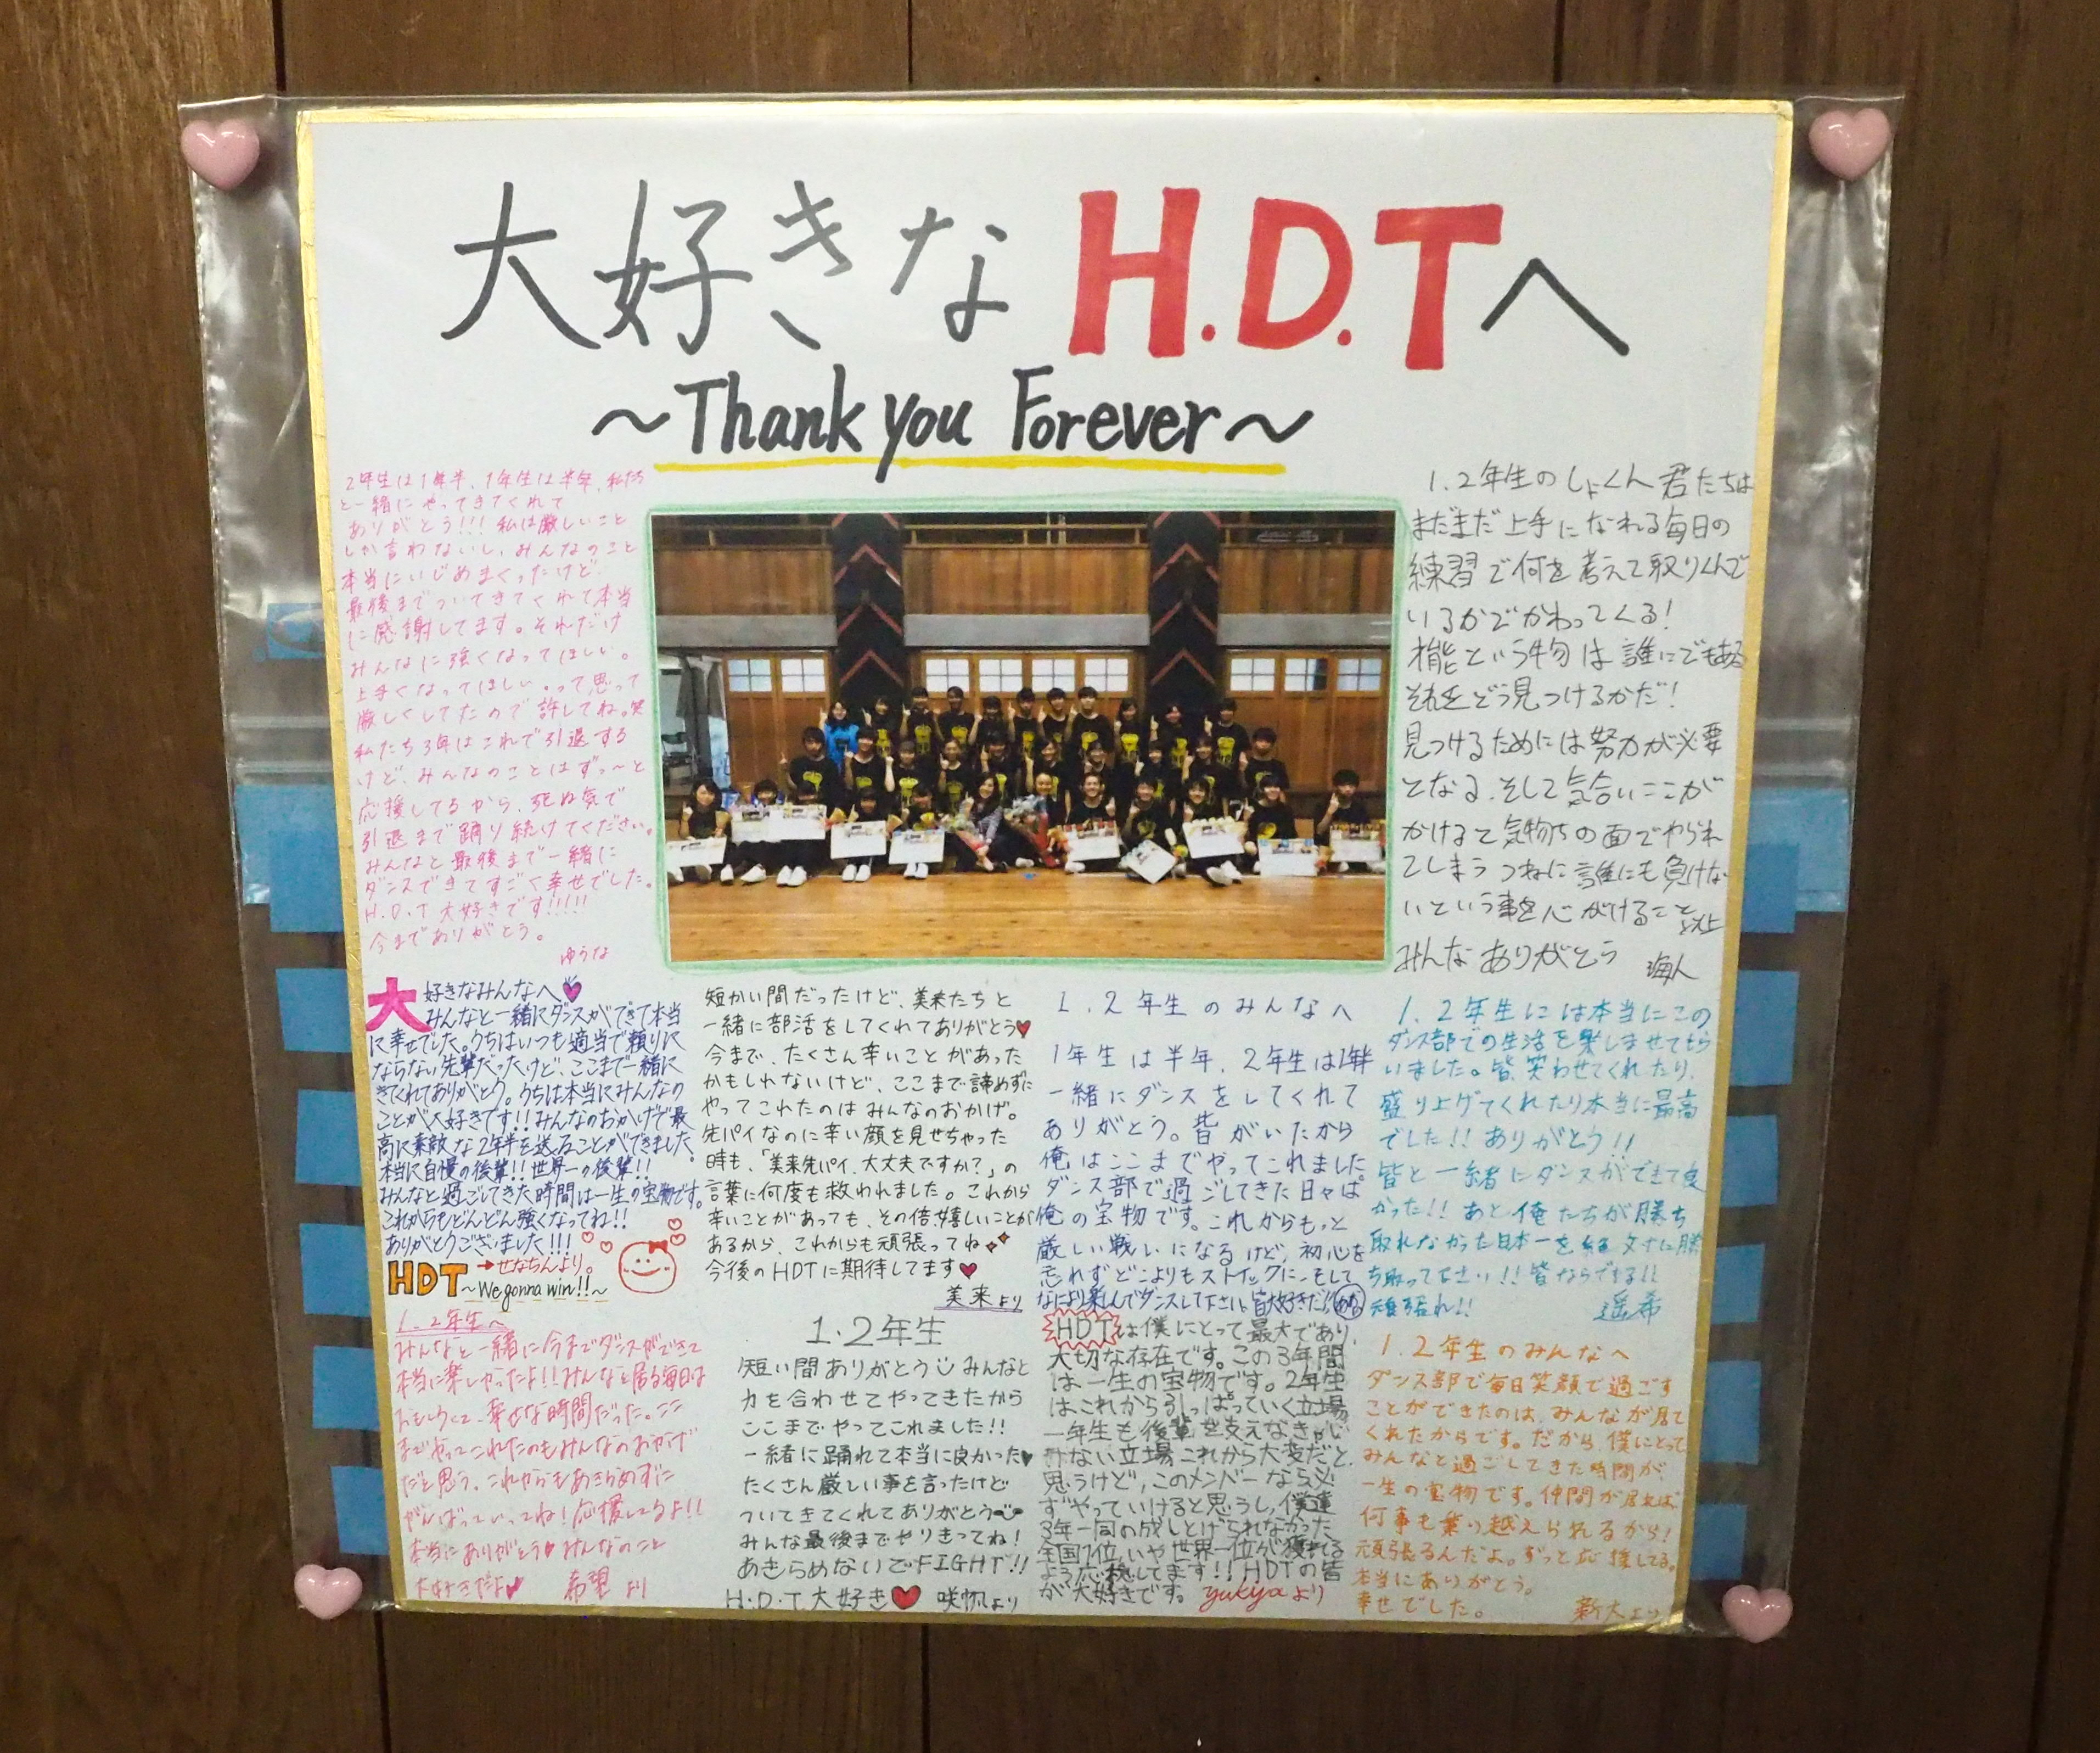 大好きなH.D.Tへ
～Thank you Forever～
2年生は1年半、1年生は半年、私たち
と一緒にやってきてくれて
ありがとう!!! 私は厳しいこと
しか言わないし、みんなのこと
本当にいじめまくったけど、
最後までついてきてくれて本当
に感謝してます。それだけ
みんなに強くなってほしい。
上手くなってほしい。って思って
厳しくしてたので許してね。笑
私たち3年はこれで引退する
けど、みんなのことはずっ〜と
応援してるから、死ぬ気で
引退まで踊り続けてください。
みんなと最後まで一緒に
ダンスできてすごく幸せでした。
H.D.T 大好きです!!!!!
今までありがとう。
ゆうな
1.2年生のしょくん 君たちは
まだまだ上手になれる毎日の
練習で何を考えて取りくんで
いるかでかわってくる!
才能という物は誰にでもある
それをどう見つけるかだ!
見つけるためには努力が必要
となる、そして気合いここが
かけると気持ちの面でやられ
てしまう つねに誰にも負けな
いという事を心がけること 以上
みんなありがとう 海人
大好きなみんなへ
みんなと一緒にダンスができて本当
に幸せでした。うちはいつも適当で頼りに
ならない先輩だったけど、ここまで一緒に
きてくれてありがとう。うちは本当にみんなの
ことが大好きです!!みんなのおかげで最
高に素敵な2年半を送ることができました。
本当に自慢の後輩!!世界一の後輩!!
みんなと過ごしてきた時間は一生の宝物です。
これからもどんどん強くなってね!!
ありがとうございました!!!
→せなちんより。
HDT ～We gonna win!!～
短かい間だったけど、美来たちと
一緒に部活をしてくれてありがとう♥
今まで、たくさん辛いことがあった
かもしれないけど、ここまで諦めずに
やってこれたのはみんなのおかげ。
先パイなのに辛い顔を見せちゃった
時も、「美来先パイ、大丈夫ですか?」の
言葉に何度も救われました。これから
辛いことがあっても、その倍、嬉しいことが
あるから、これからも頑張ってね
今後のHDTに期待してます♥
美来より
1.2年生のみんなへ
1年生は半年、2年生は1年半
一緒にダンスをしてくれて
ありがとう。皆がいたから
俺はここまでやってこれました
ダンス部で過ごしてきた日々は
俺の宝物です。これからもっと
厳しい戦いになるけど、初心を
忘れずどこよりもストイックに、そして
なにより楽しんでダンスして下さい、皆大好きだ!!
1.2年生には本当にこの
ダンス部での生活を楽しませてもら
いました。皆、笑わせてくれたり、
盛り上げてくれたり本当に最高
でした!! ありがとう!!
皆と一緒にダンスができて良
かった!! あと俺たちが勝ち
取れなかった日本一を絶対に勝
ち取って下さい!! 皆ならできる!!
頑張れ!! 遥希
1.2年生へ
みんなと一緒に今までダンスができて
本当に楽しかったよ!!みんなと居る毎日は
おもしろくて、幸せな時間だった。ここ
までやってこれたのもみんなのおかげ
だと思う。これからもあきらめずに
がんばっていってね!応援してるよ!!
本当にありがとう♥みんなのこと
大好きだよ♥ 希望より
1.2年生
短い間ありがとう みんなと
力を合わせてやってきたから
ここまでやってこれました!!
一緒に踊れて本当に良かった♥
たくさん厳しい事を言ったけど
ついてきてくれてありがとう
みんな最後までやりきってね!
あきらめないでFIGHT!!
H.D.T 大好き♥ 咲帆より
HDTは僕にとって最大であり、
大切な存在です。この3年間
は一生の宝物です。2年生
はこれから引っぱっていく立場
一年生も後輩を支えなきゃい
けない立場、これから大変だと
思うけど、このメンバーなら必
ずやっていけると思うし、僕達
3年一同の成しとげられなかった
全国1位、いや世界一位が獲れる
よう応援してます!!HDTの皆
が大好きです。 yukiyaより
1.2年生のみんなへ
ダンス部で毎日笑顔で過ごす
ことができたのは、みんなが居て
くれたからです。だから、僕にとって
みんなと過ごしてきた時間が、
一生の宝物です。仲間が居れば、
何事も乗り越えられるから!
頑張るんだよ。ずっと応援してる。
本当にありがとう。
幸せでした。 新大より